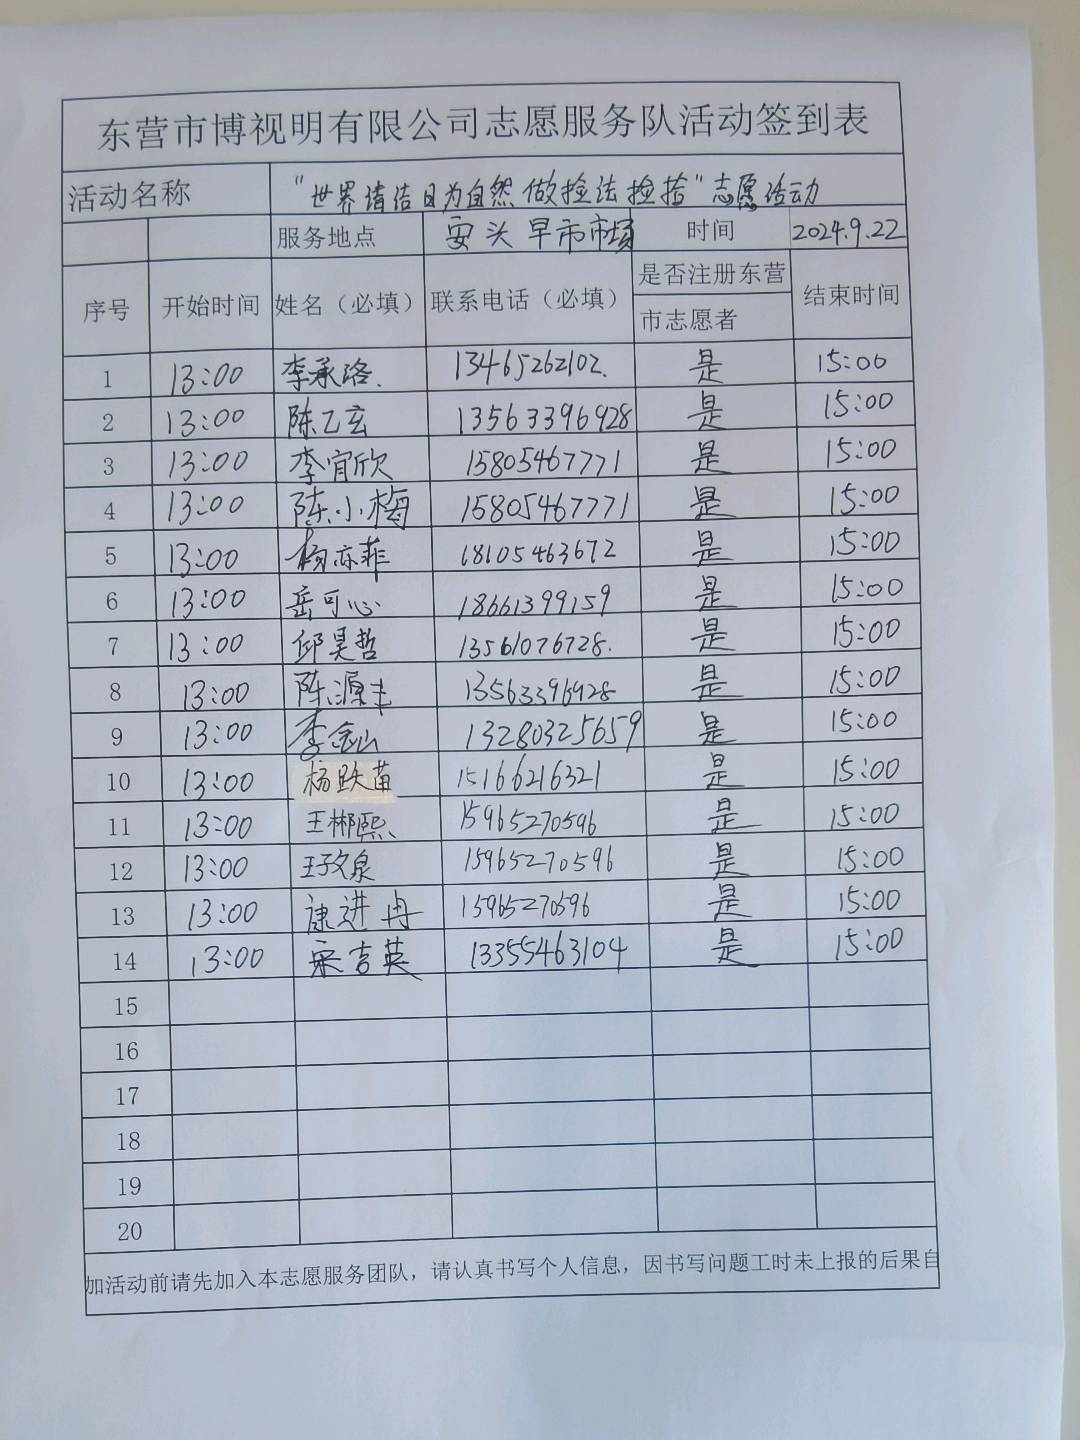 东营市博视明有限公司志愿服务队活动签到表
活动名称 "世界清洁日为自然做捡法捡拾"志愿活动
服务地点 安头早市市场 时间 2024.9.22
序号 开始时间 姓名（必填） 联系电话（必填） 是否注册东营市志愿者 结束时间
1 13:00 李承洛. 13465262102. 是 15:00
2 13:00 陈乙玄 13563396928 是 15:00
3 13:00 李宜欣 15805467771 是 15:00
4 13:00 陈小梅 15805467771 是 15:00
5 13:00 杨亦菲 18105463672 是 15:00
6 13:00 岳可心 18661399159 是 15:00
7 13:00 邱昊哲 13561076728. 是 15:00
8 13:00 陈源丰 13563396928 是 15:00
9 13:00 李念山 13280325659 是 15:00
10 13:00 杨跃苗 15166216321 是 15:00
11 13:00 王郴熙 15965270596 是 15:00
12 13:00 王孜泉 15965270596 是 15:00
13 13:00 康进冉 15965270596 是 15:00
14 13:00 宋吉英 13355463104 是 15:00
15
16
17
18
19
20
加活动前请先加入本志愿服务团队，请认真书写个人信息，因书写问题工时未上报的后果自